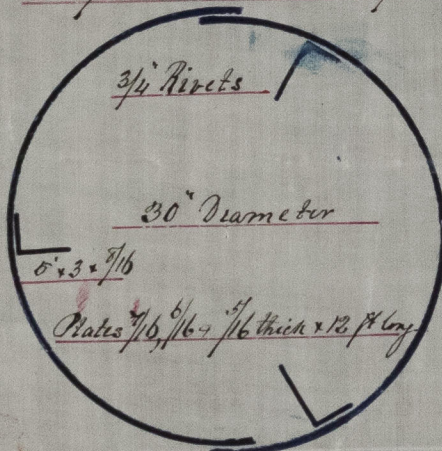 3/4" Rivets
30" Diameter
5" × 3 × 5/16
Plates 7/16, 6/16 & 5/16 thick × 12 ft long